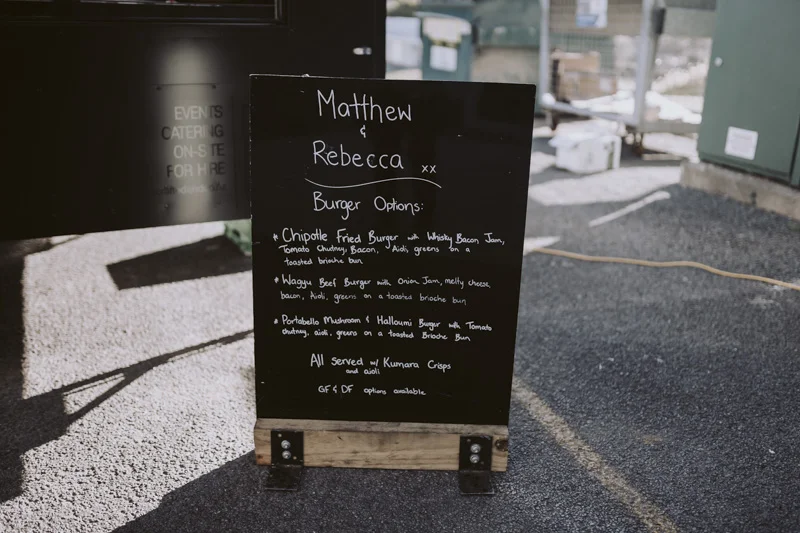 EVENTS
CATERING
ON-SITE
FOR HIRE
Matthew
&
Rebecca xx
Burger Options:
* Chipotle Fried Burger with Whisky Bacon Jam,
Tomato Chutney, Bacon, Aioli, greens on a
toasted brioche bun
* Wagyu Beef Burger with Onion Jam, melty cheese,
bacon, Aioli, greens on a toasted brioche bun
* Portabello Mushroom & Halloumi Burger with Tomato
chutney, aioli, greens on a toasted Brioche Bun
All served w/ Kumara Crisps
and aioli
GF & DF options available